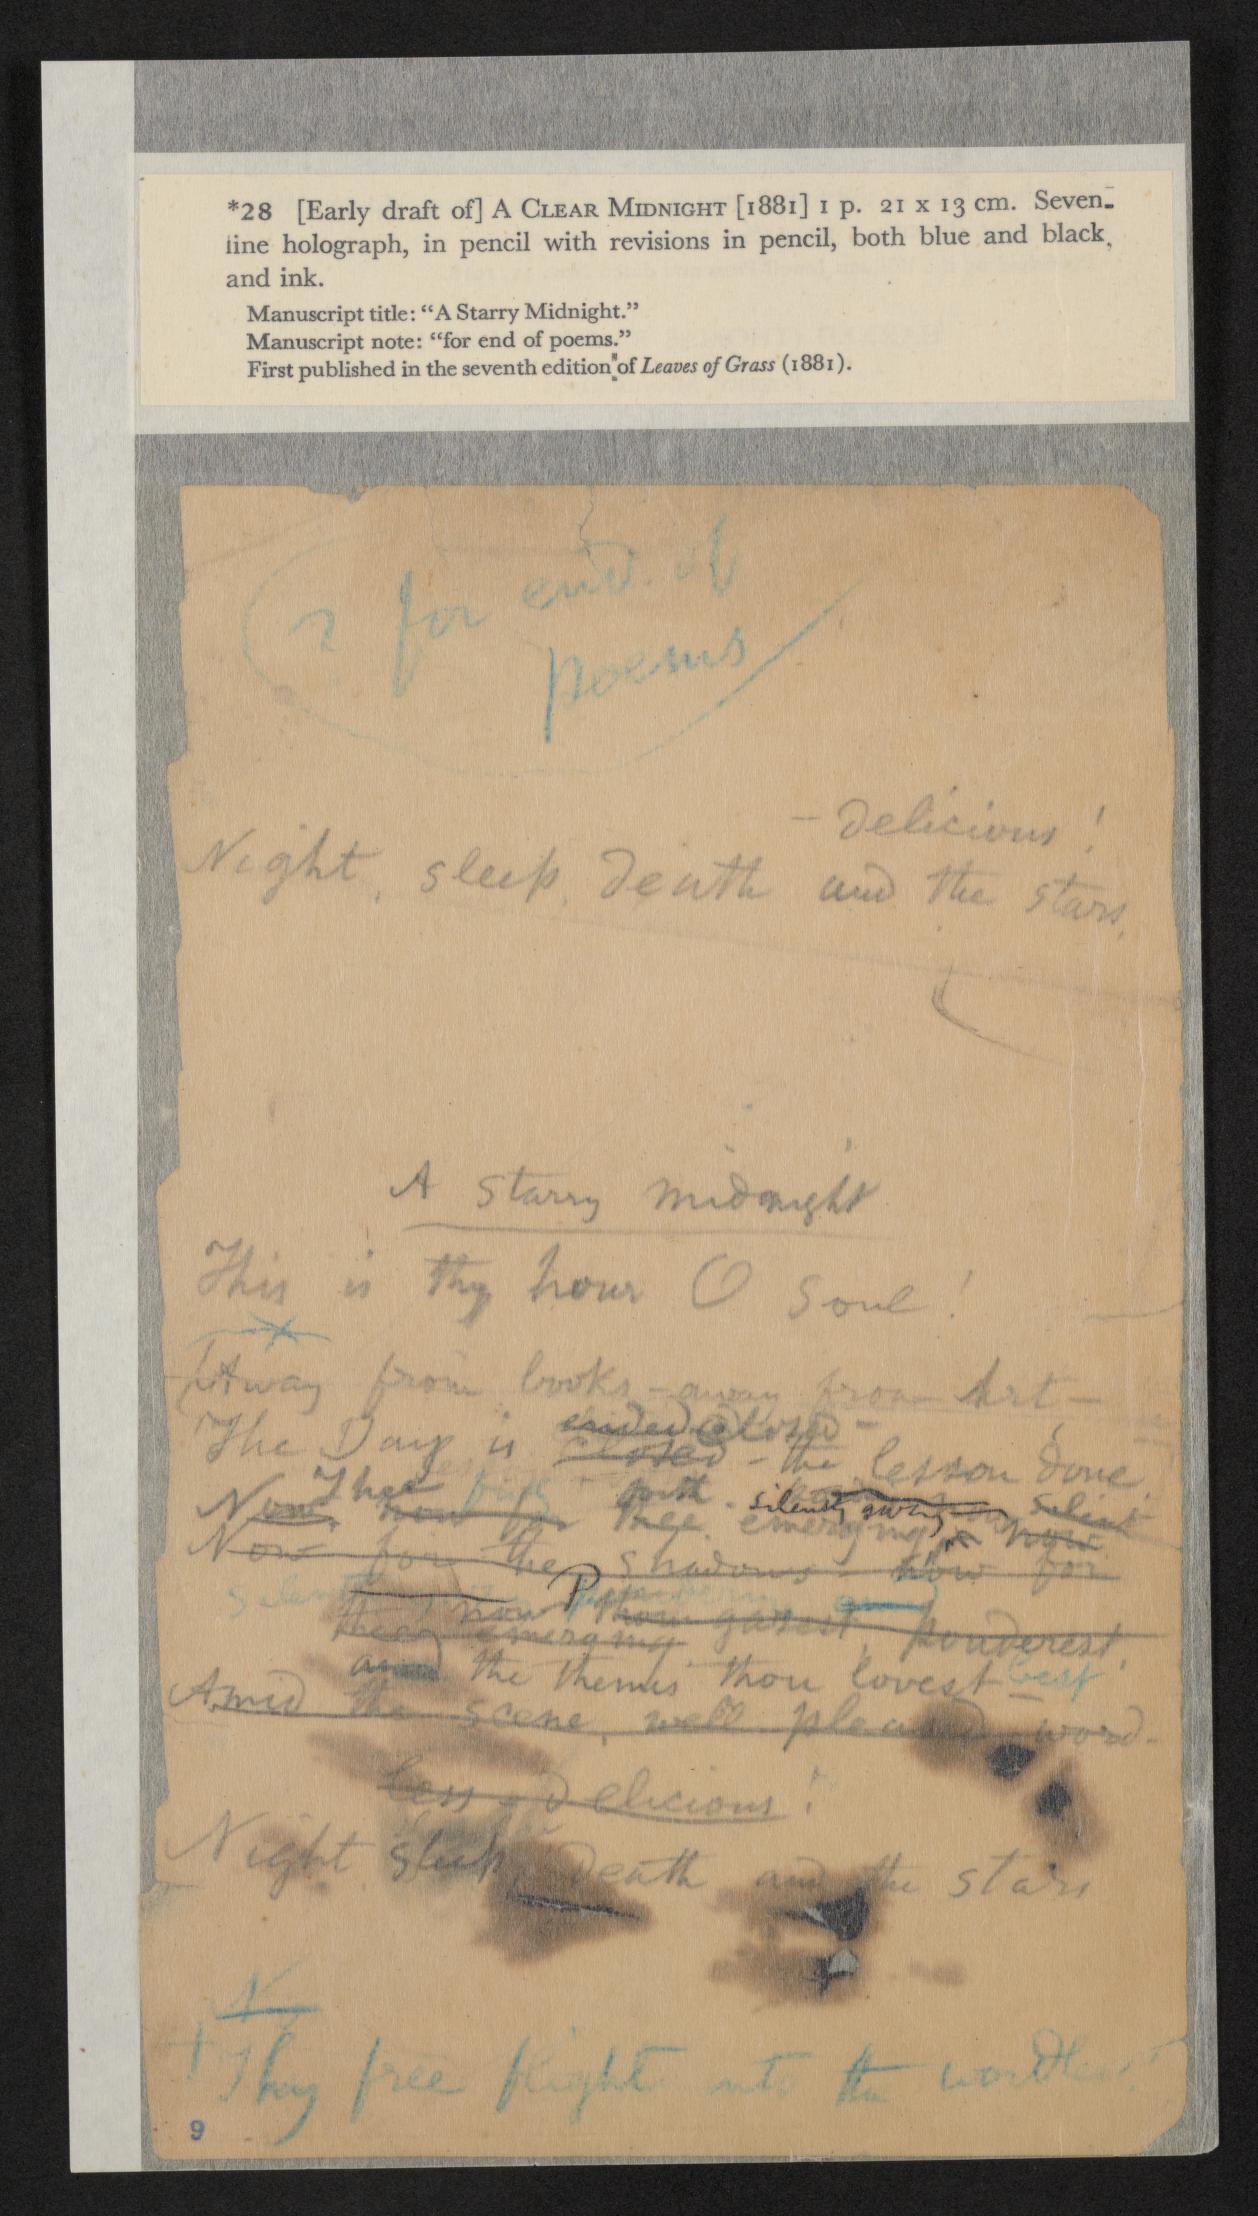 *28 [Early draft of] A CLEAR MIDNIGHT [1881] 1 p. 21 x 13 cm. Seven-
line holograph, in pencil with revisions in pencil, both blue and black,
and ink.
Manuscript title: “A Starry Midnight.”
Manuscript note: “for end of poems.”
First published in the seventh edition of Leaves of Grass (1881).
? for end of
poems
– delicious!
Night, sleep, death and the stars.
A Starry midnight
This is thy hour O Soul!
Away from books – away from Art –
ended closed –
The Day is closed – the lesson done
Thee fully forth silently gazing silent
Now, now for thee emerging now
Now for the shadows – now for
Silent
now thou gazest, ponderest,
thee emerging
and the themes thou lovest best
Amid the scene, well pleased word-
less – delicious!
Night sleep, death and the stars
Thy free flight into the wordless!
9